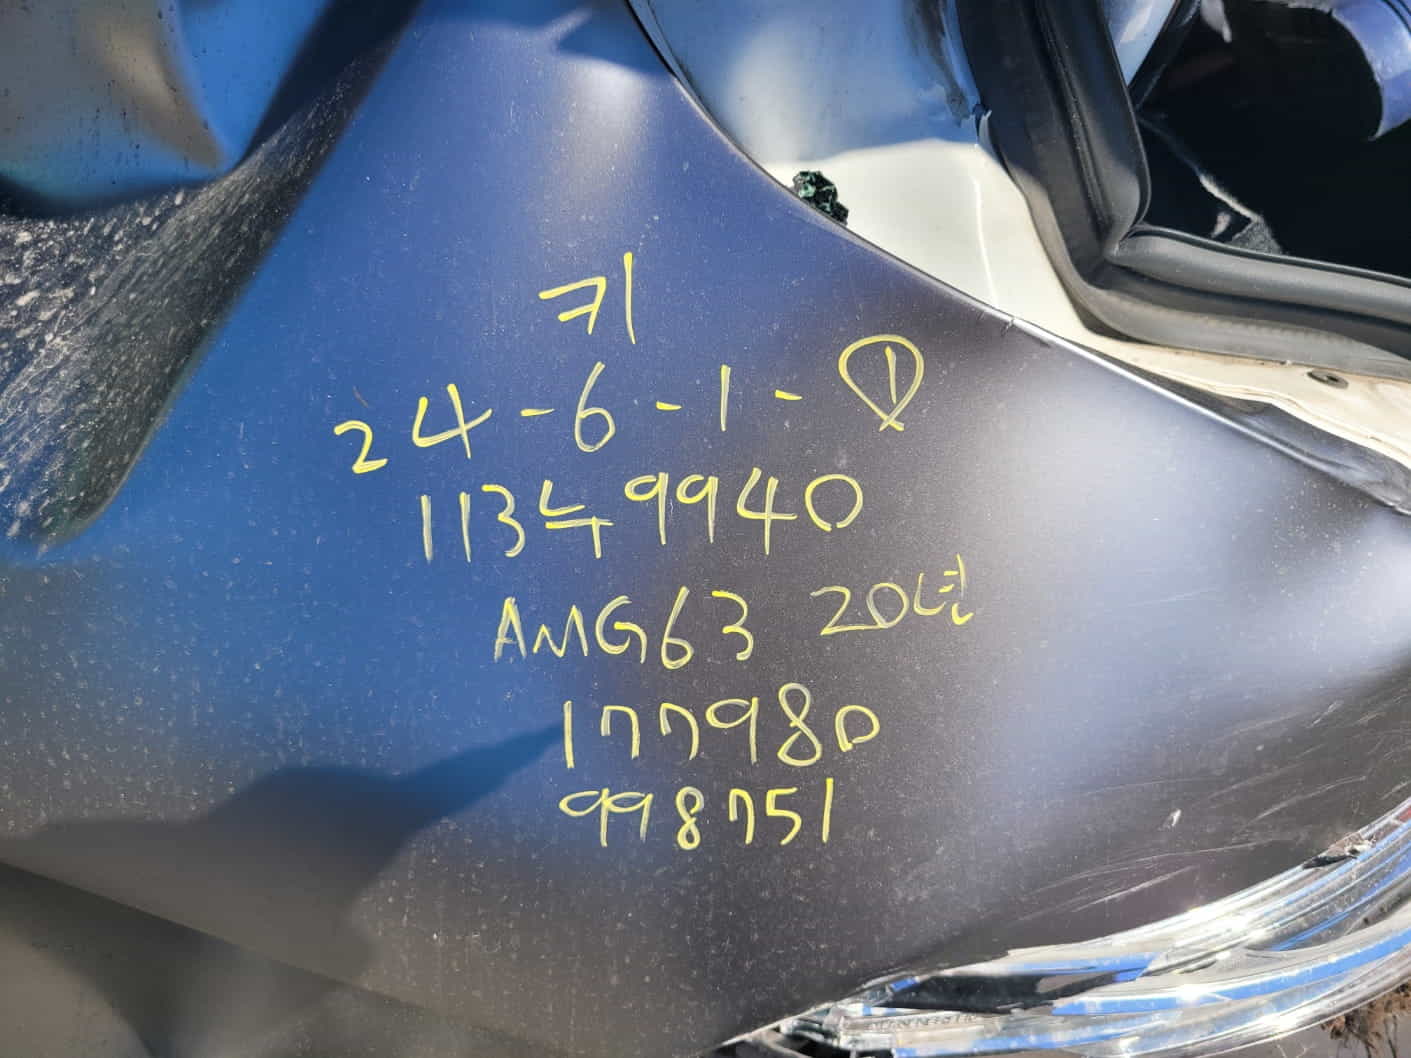 키
24-6-1-①
113누9940
AMG63 20년
177980
998751